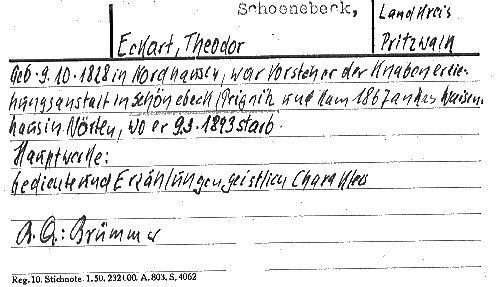 Schoenebeck,
Landkreis
Pritzwalk
Eckart, Theodor
Geb. 9.10.1828 in Nordhausen, war Vorsteher der Knabenerzie-
hungsanstalt in Schönebeck (Prignitz und kam 1867 an das Waisen-
haus in Nörten, wo er 9.3.1893 starb.
Hauptwerke:
Gedichte und Erzählungen geistlichen Charakters
B.Q.: Brümmer
Reg. 10. Stichnote. 1.50. 232100. A. 803. S. 4062